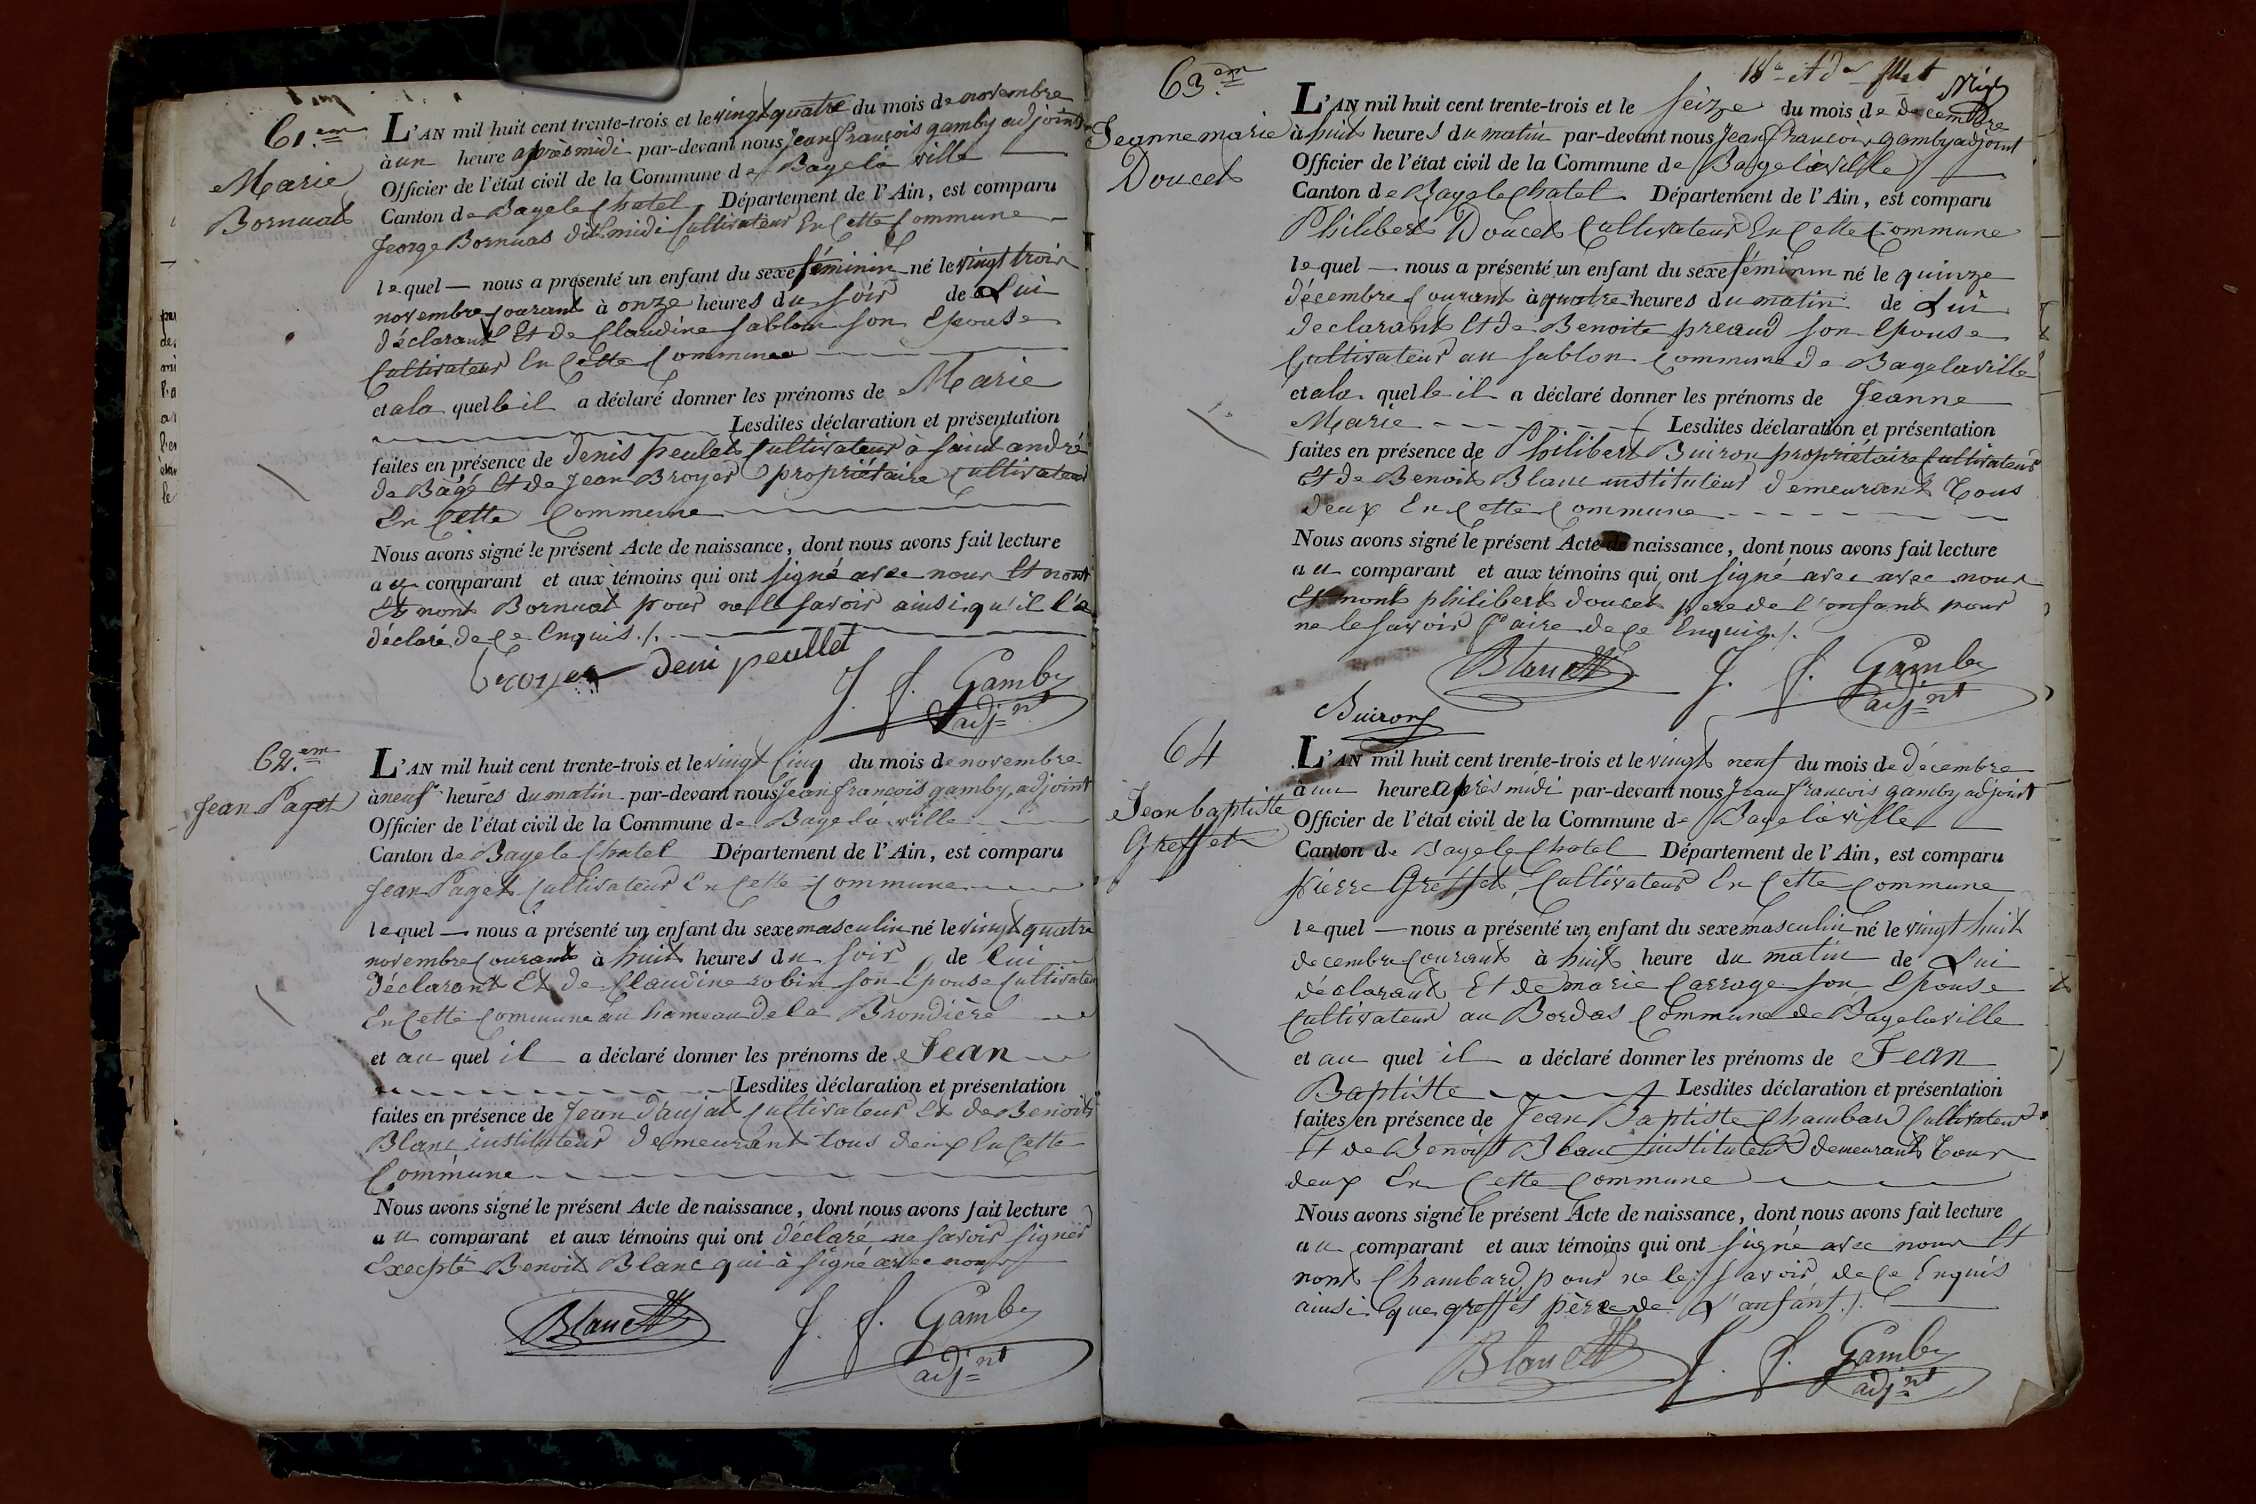 61.em
Marie
Bornuat
L'AN mil huit cent trente-trois et le vingt quatre du mois de novembre
à un heure après midi par-devant nous Jean françois gamby adjoint
Officier de l'état civil de la Commune de Bagé la ville
Canton de Bagé le Chatel Département de l'Ain, est comparu
George Bornuas dit midi Cultivateur En Cette Commune
lequel nous a présenté un enfant du sexe féminin né le vingt trois
novembre Courant à onze heures du soir de Lui
déclarant Et de Claudine sablon son Epouse
Cultivateur En Cette Commune
et a la quelle il a déclaré donner les prénoms de Marie
Lesdites déclaration et présentation
faites en présence de denis peulet Cultivateur à saint andré
de Bagé Et de Jean Broyer propriétaire Cultivateur
En Cette Commune
Nous avons signé le présent Acte de naissance, dont nous avons fait lecture
au comparant et aux témoins qui ont signé avec nous Et nont
Et nont Bornuat pour ne le savoir ainsi qu'il l'a
déclaré de Ce Enquis ./.
Broyer deni peullet
J. f. Gamby
adj=nt
62.em
Jean Paget
L'AN mil huit cent trente-trois et le vingt Cinq du mois de novembre
à neuf heures du matin par-devant nous Jean françois gamby, adjoint
Officier de l'état civil de la Commune de Bagé la ville
Canton de Bagé le Chatel Département de l'Ain, est comparu
Jean Paget Cultivateur En Cette Commune
lequel nous a présenté un enfant du sexe masculin né le vingt quatre
novembre Courant à huit heures du soir de Lui
déclarant Et de Claudine robin son Epouse Cultivateur
En Cette Commune au hameau de la Brondière
et au quel il a déclaré donner les prénoms de Jean
Lesdites déclaration et présentation
faites en présence de Jean Daujat Cultivateur Et de Benoit
Blanc instituteur demeurant tous deux En Cette
Commune
Nous avons signé le présent Acte de naissance, dont nous avons fait lecture
au comparant et aux témoins qui ont déclaré ne savoir signer
Execpté Benoit Blanc qui à signé avec nous
Blanc
J. f. Gamby
adj=nt
63.em
Jeanne marie
Doucet
L'AN mil huit cent trente-trois et le seize du mois de decembre
à huit heures du matin par-devant nous Jean francois gamby adjoint
Officier de l'état civil de la Commune de Bagé la ville
Canton de Bagé le Chatel Département de l'Ain, est comparu
Philibert Doucet Cultivateur En Cette Commune
lequel nous a présenté un enfant du sexe féminin né le quinze
décembre Courant à quatre heures du matin de Lui
declarant Et de Benoite preaud son Epouse
Cultivateur au sablon Commune de Bagé la ville
et a la quelle il a déclaré donner les prénoms de Jeanne
Marie Lesdites déclaration et présentation
faites en présence de Philibert Buiron propriétaire Cultivateur
Et de Benoit Blanc instituteur demeurant tous
deux En Cette Commune
Nous avons signé le présent Acte de naissance, dont nous avons fait lecture
au comparant et aux témoins qui ont signé avec avec nous
Et nont philibert doucet pere de l'enfant pour
ne le savoir faire de Ce Enquis ./.
Blanc
J. f. Gamby
adj=nt
Buiron
64
Jean baptiste
Greffet
L'AN mil huit cent trente-trois et le vingt neuf du mois de décembre
à un heure après midi par-devant nous Jean francois gamby adjoint
Officier de l'état civil de la Commune de Bagé la ville
Canton de Bagé le Chatel Département de l'Ain, est comparu
Pierre Greffet, Cultivateur En Cette Commune
lequel nous a présenté un enfant du sexe masculin né le vingt huit
decembre Courant à huit heure du matin de Lui
déclarant Et de marie Carrage son Epouse
Cultivateur au Bordas Commune de Bagé la ville
et au quel il a déclaré donner les prénoms de Jean
Baptiste Lesdites déclaration et présentation
faites en présence de Jean Baptiste Chambard Cultivateur
Et de Benoit Blanc instituteur demeurant tous
deux En Cette Commune
Nous avons signé le présent Acte de naissance, dont nous avons fait lecture
au comparant et aux témoins qui ont signé avec nous Et
nont Chambard pour ne le savoir de Ce Enquis
ainsi que greffet père de L'anfant ./.
Blanc
J. f. Gamby
adj=nt